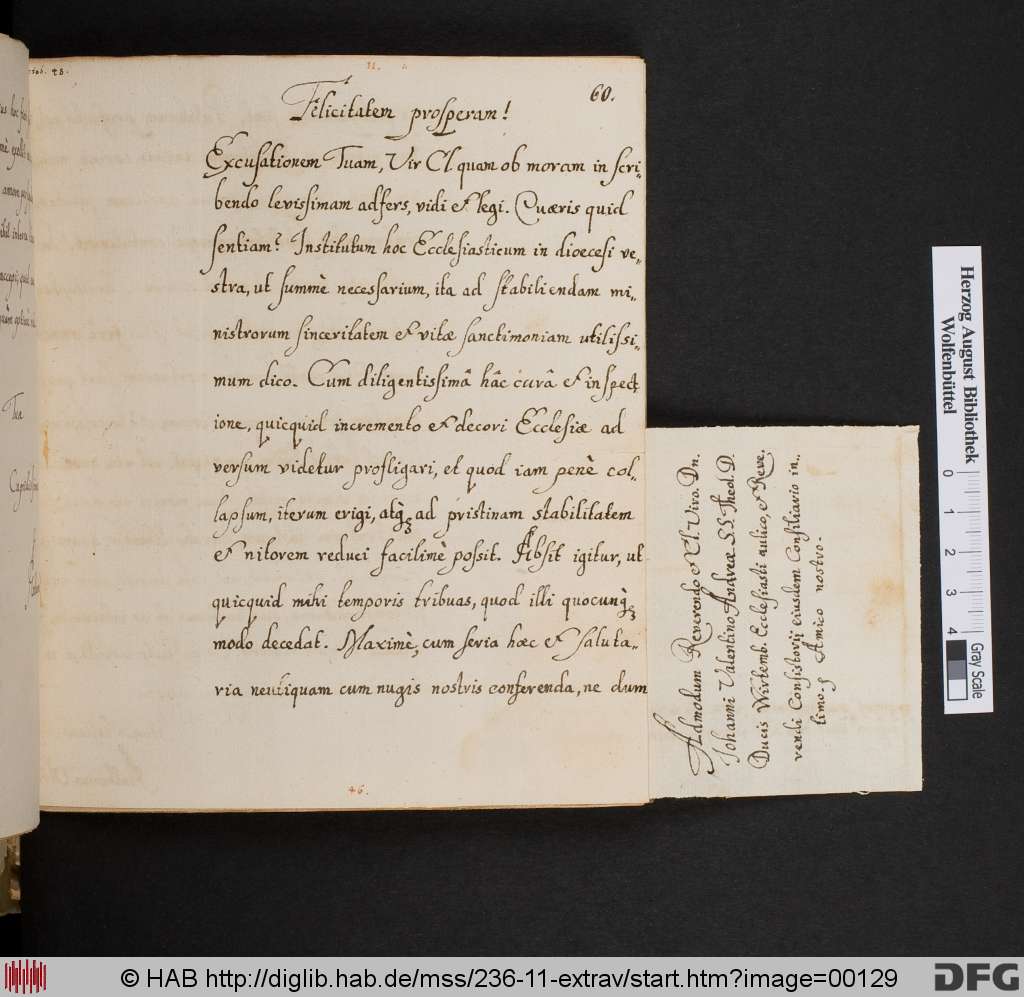 60.
Felicitatem prosperam!
Excusationem Tuam, Vir Cl. quam ob moram in scri-
bendo levissimam adfers, vidi & legi. Quæris quid
sentiam? Institutum hoc Ecclesiasticum in dioecesi ve-
stra, ut summè necessarium, ita ad stabiliendam mi-
nistrorum sinceritatem & vitæ sanctimoniam utilissi-
mum dico. Cum diligentissimâ hâc curâ & inspect
ione, quicquid incremento & decori Ecclesiæ ad
versum videtur profligari, et quod iam penè col-
lapsum, iterum erigi, atq; ad pristinam stabilitatem
& nitorem reduci facilimè possit. Absit igitur, ut
quicquid mihi temporis tribuas, quod illi quocunq;
modo decedat. Maximè, cum seria hæc & saluta-
ria neutiquam cum nugis nostris conferenda, ne dum
46.
Admodum Reverendo & Cl. Viro. Dn.
Johanni Valentino Andreæ S.S. Theol. D.
Ducis Wirtemb. Ecclesiasti aulico, & Reve.
rendi Consistorij eiusdem Consiliario in-
timo. Amico nostro.
Herzog August Bibliothek
Wolfenbüttel
0 1 2 3 4
Gray Scale
© HAB http://diglib.hab.de/mss/236-11-extrav/start.htm?image=00129
DFG